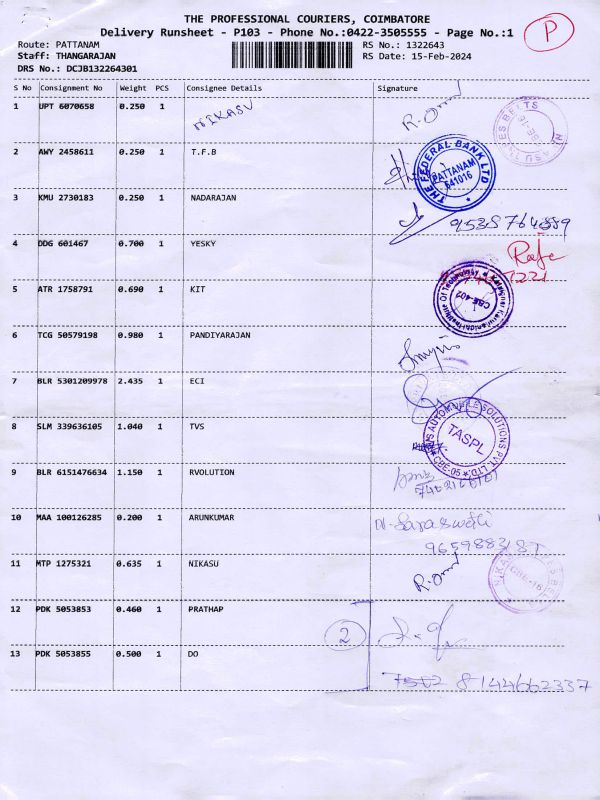 THE PROFESSIONAL COURIERS, COIMBATORE
Delivery Runsheet - P103 - Phone No.:0422-3505555 - Page No.:1
P
Route: PATTANAM
RS No.: 1322643
Staff: THANGARAJAN
RS Date: 15-Feb-2024
DRS No.: DCJB132264301
S No Consignment No Weight PCS Consignee Details Signature
1 UPT 6070658 0.250 1 NIKASU
2 AWY 2458611 0.250 1 T.F.B
THE FEDERAL BANK LTD.
PATTANAM
641016
3 KMU 2730183 0.250 1 NADARAJAN
4 DDG 601467 0.700 1 YESKY
5 ATR 1758791 0.690 1 KIT
CBE-402
6 TCG 50579198 0.980 1 PANDIYARAJAN
7 BLR 5301209978 2.435 1 ECI
8 SLM 339636105 1.040 1 TVS
TASPL
CBE-05
9 BLR 6151476634 1.150 1 RVOLUTION
10 MAA 100126285 0.200 1 ARUNKUMAR
11 MTP 1275321 0.635 1 NIKASU
CBE-16
12 PDK 5053853 0.460 1 PRATHAP
2
13 PDK 5053855 0.500 1 DO
8144662337